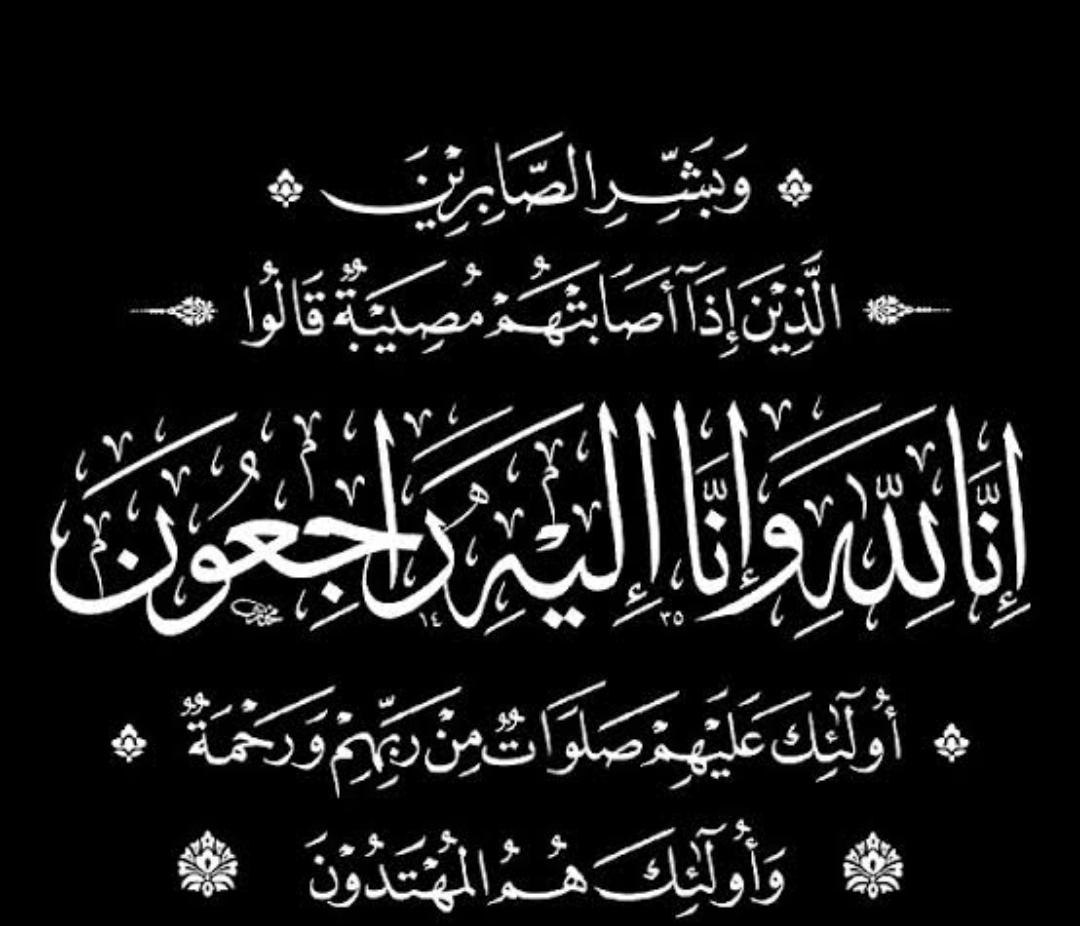 وَبَشِّرِ الصَّابِرِيْنَ
الَّذِيْنَ إِذَا أَصَابَتْهُمْ مُصِيْبَةٌ قَالُوا
إِنَّا لِلّٰهِ وَإِنَّا إِلَيْهِ رَاجِعُونَ
١٤ ٣٥
أُولَٰئِكَ عَلَيْهِمْ صَلَوَاتٌ مِنْ رَبِّهِمْ وَرَحْمَةٌ
وَأُولَٰئِكَ هُمُ الْمُهْتَدُوْنَ